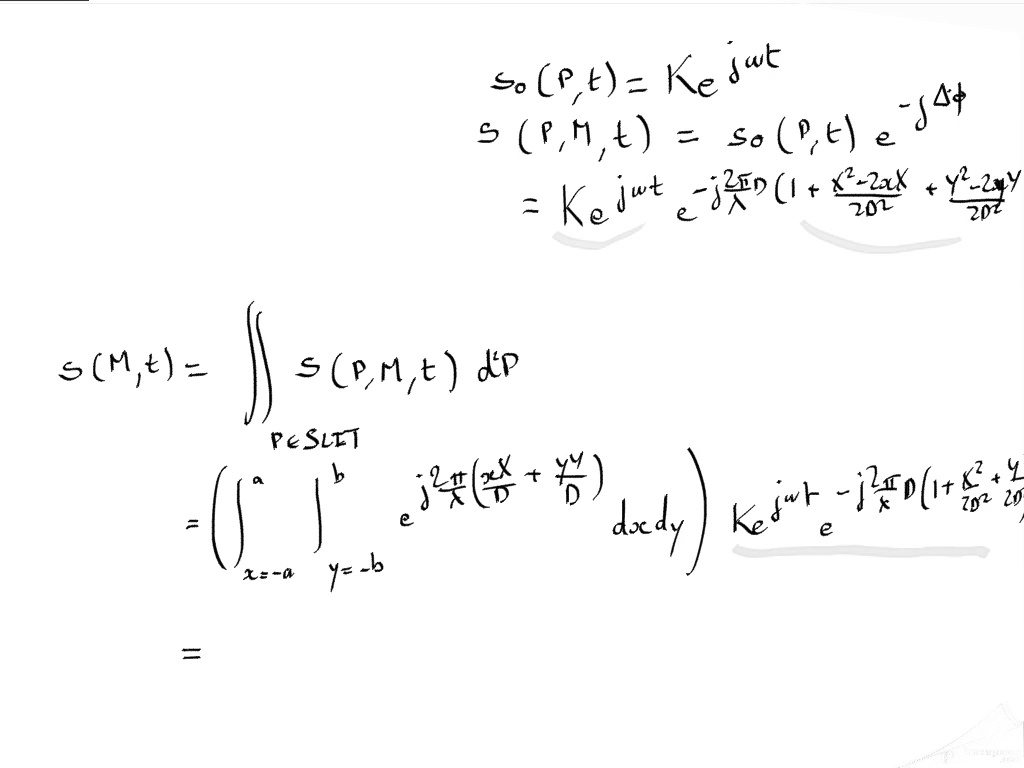 s₀(P,t) = K e^{jωt}
s(P,M,t) = s₀(P,t) e^{-jΔφ}
= K e^{jωt} e^{-j 2π/λ D (1 + (X²-2xX)/2D² + (Y²-2yY)/2D²}
s(M,t) = ∬_{P∈SLIT} s(P,M,t) d²P
= ( ∫_{x=-a}^{a} ∫_{y=-b}^{b} e^{j 2π/λ (xX/D + yY/D)} dx dy ) K e^{jωt} e^{-j 2π/λ D (1 + X²/2D² + Y/2D}
=